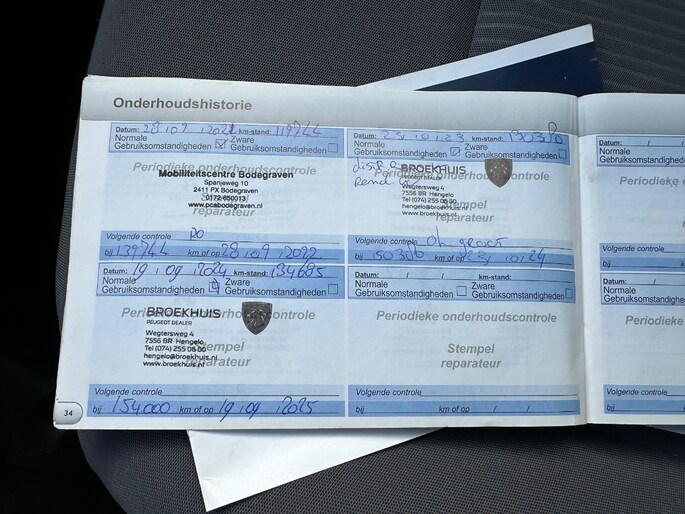 Onderhoudshistorie
Datum: 28/09/2021 km-stand: 119744
Normale Gebruiksomstandigheden Zware Gebruiksomstandigheden
Periodieke onderhoudscontrole
Mobiliteitscentre Bodegraven
Spanjeweg 10
2411 PX Bodegraven
0172-650013
www.pcabodegraven.nl
Stempel
reparateur
Volgende controle
bij 139744 km of op 28/09/2022
Datum: 23/10/23 km-stand:
Normale Gebruiksomstandigheden Zware Gebruiksomstandigheden
Periodieke onderhoudscontrole
BROEKHUIS
Wegtersweg 4
7556 BR Hengelo
Tel (074) 255 06 00
hengelo@broekhuis.nl
www.broekhuis.nl
reparateur
Volgende controle
bij km of op 23/10/24
Datum: 19/09/2024 km-stand: 134685
Normale Gebruiksomstandigheden Zware Gebruiksomstandigheden
Periodieke onderhoudscontrole
BROEKHUIS
PEUGEOT DEALER
Wegtersweg 4
7556 BR Hengelo
Tel (074) 255 06 00
hengelo@broekhuis.nl
www.broekhuis.nl
Stempel
reparateur
Volgende controle
bij 154000 km of op 19/09/2025
Datum: / / km-stand:
Normale Gebruiksomstandigheden Zware Gebruiksomstandigheden
Periodieke onderhoudscontrole
Stempel
reparateur
Volgende controle
bij km of op / /
34
Datum: / /
Normale
Gebruiksomstandigheden
Volgende controle
bij
Datum: /
Normale
Gebruiksomstandigheden
Volgende controle
bij